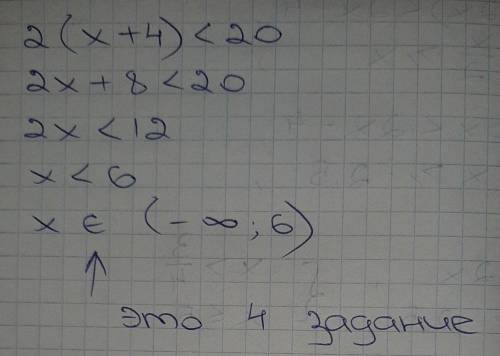 2(x+4)<20
2x+8<20
2x<12
x<6
x ∈ (-∞;6)
↑
это 4 задание